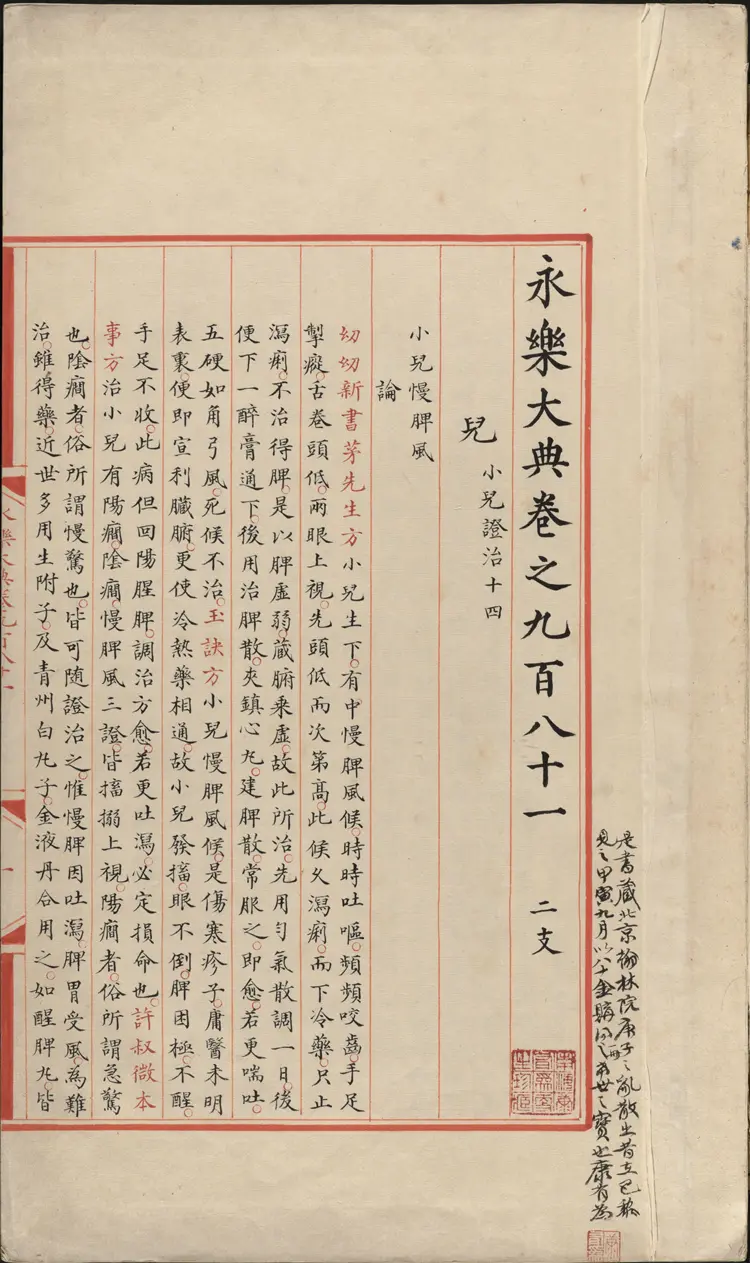 是書藏北京翰林院庚子之亂散出昔在巴黎
見之甲寅九月以八十金購得之希世之寶也康有為
永樂大典卷之九百八十一 二支
兒 小兒證治十四
小兒慢脾風
論
幼幼新書茅先生方小兒生下。有中慢脾風候。時時吐嘔。頻頻咬齒。手足
掣瘲。舌卷頭低。兩眼上視。先頭低而次第高。此候久瀉痢。而下冷藥。只止
瀉痢。不治得脾。是以脾虛弱。蔵腑乘虛。故此所治。先用勻氣散調一日。後
便下一醉膏通下。後用治脾散。夾鎮心丸。建脾散。常服之。即愈。若更喘吐。
五硬如角弓風。死候不治。玉訣方小兒慢脾風候。是傷寒疹子。庸醫未明
表裏。便即宣利臟腑。更使冷熱藥相通。故小兒發搐。眼不倒。脾困極。不醒。
手足不收。此病但回陽腥脾。調治方愈。若更吐瀉。必定損命也。許叔微本
事方治小兒有陽癎。陰癎。慢脾風三證。皆搐搦上視。陽癎者。俗所謂急驚
也。陰癎者。俗所謂慢驚也。皆可隨證治之。惟慢脾因吐瀉。脾胃受風。為難
治。雖得藥。近世多用生附子。及青州白丸子。金液丹合用之。如醒脾丸。皆
永樂大典卷九百八十一